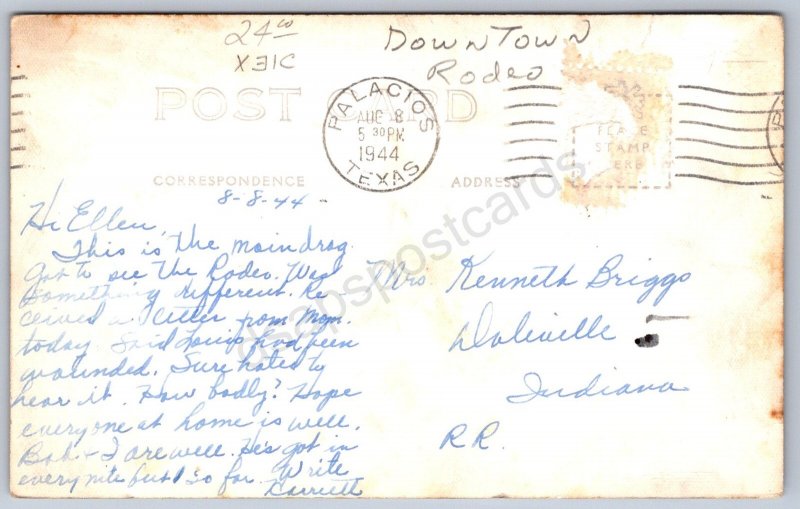 24⁰⁰
X31C
DownTown
Rodeo
POST CARD
PALACIOS
AUG 8
5 30 PM
1944
TEXAS
PLACE
STAMP
HERE
CORRESPONDENCE
ADDRESS
8-8-44-
Hi Ellen,
This is the main drag.
Got to see the Rodeo. Was
Something different. Re-
ceived a letter from Mom.
today. Said Louis had been
wounded. Sure hated to
hear it. How badly? Hope
everyone at home is well.
Bob & I are well. He's got in
every nite but 1 so far. Write
Mrs Kenneth Briggs
Daleville
Indiana
R.R.
dsapspostcards